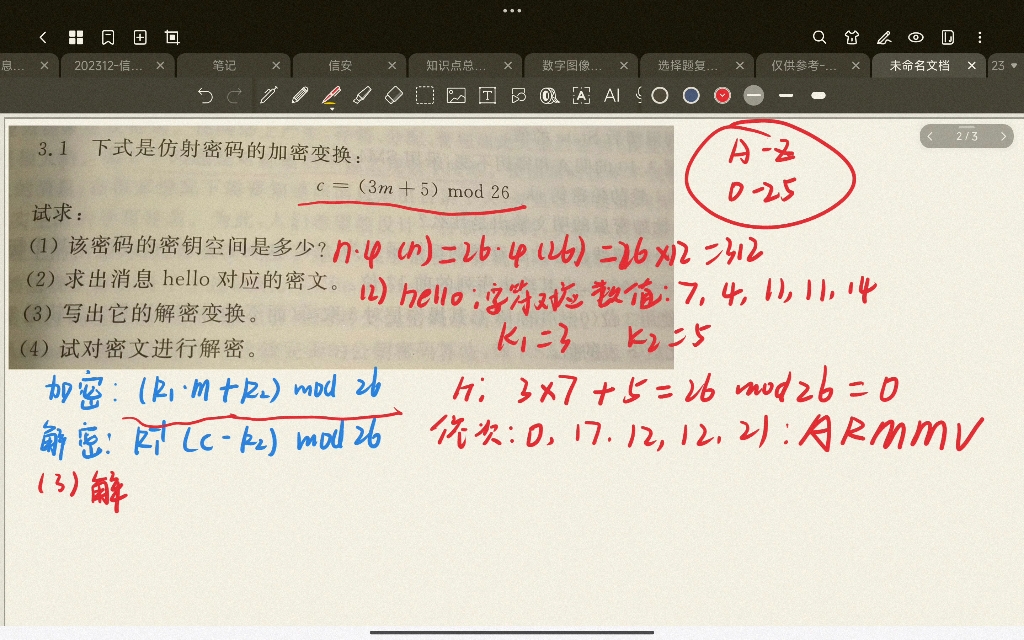 息...
202312-信...
笔记
信安
知识点总...
数字图像...
选择题复...
仅供参考-...
未命名文档
23
2/3
3.1 下式是仿射密码的加密变换：
c = (3m + 5) mod 26
试求：
(1) 该密码的密钥空间是多少?
(2) 求出消息 hello 对应的密文。
(3) 写出它的解密变换。
(4) 试对密文进行解密。
A-Z
0-25
n·φ(n)=26·φ(26)=26×12=312
(2) hello：字符对应数值：7, 4, 11, 11, 14
K₁=3 K₂=5
加密：(k₁·m+k₂) mod 26
解密：k₁⁻¹(c-k₂) mod 26
h：3×7+5=26 mod 26=0
依次：0, 17, 12, 12, 21：ARMMV
(3) 解